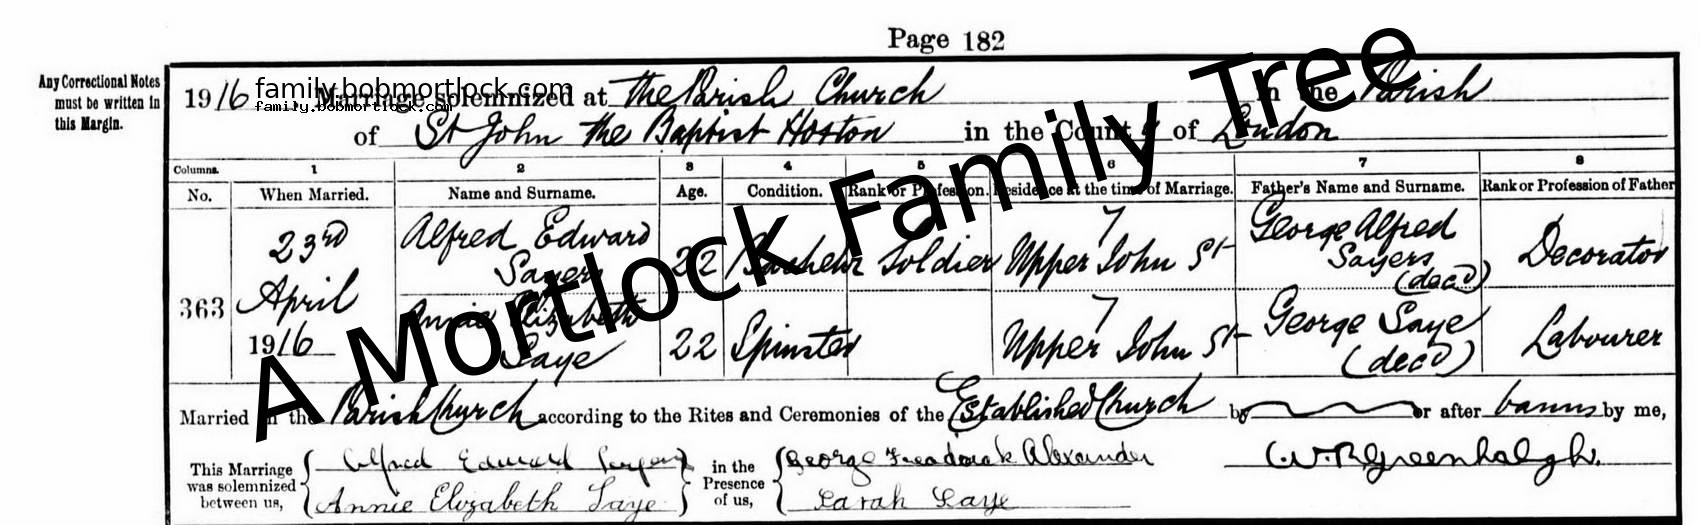 Page 182
Any Correctional Notes must be written in this Margin.
1916 Marriage solemnized at The Parish Church in the Parish
family.bobmortlock.com
family.bobmortlock.com
of St John the Baptist Hoxton in the County of London
Columns. 1 2 3 4 5 6 7 8
No. When Married. Name and Surname. Age. Condition. Rank or Profession. Residence at the time of Marriage. Father's Name and Surname. Rank or Profession of Father
363 23rd April 1916
Alfred Edward Sayers 22 Bachelor Soldier 7 Upper John St George Alfred Sayers (decd) Decorator
Annie Elizabeth Saye 22 Spinster 7 Upper John St George Saye (decd) Labourer
Married in the Parish Church according to the Rites and Ceremonies of the Established Church by or after banns by me,
This Marriage was solemnized between us, Alfred Edward Sayers
Annie Elizabeth Saye
in the Presence of us, George Frederick Alexander
Sarah Saye
W. R. Greenhalgh.
A Mortlock Family Tree